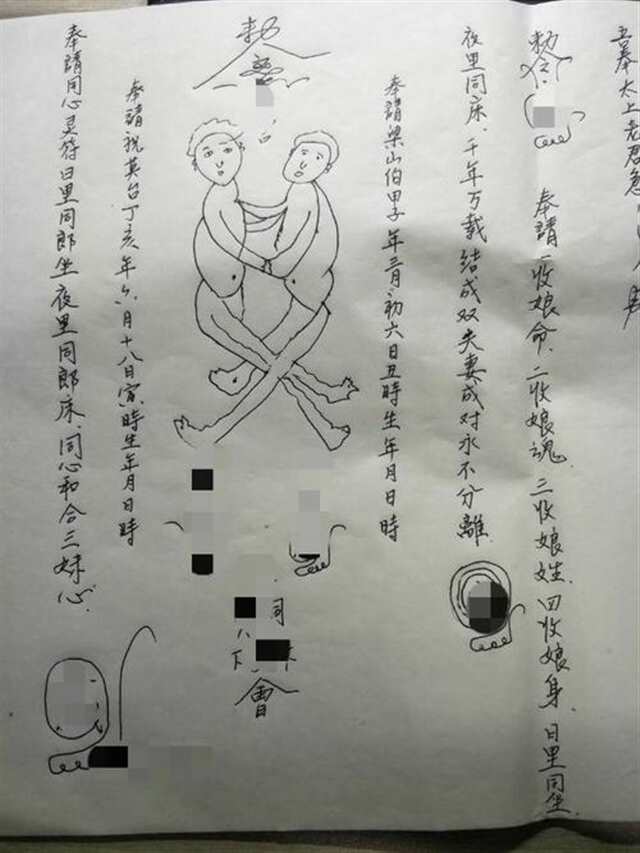 五奉太上老君急
勅令
奉請一收娘命、二收娘魂、三收娘姓、四收娘身、日里同坐
夜里同床、千年万载结成双夫妻成对永不分離
奉請梁山伯甲子年三月初六日丑時生年月日時
勅
合
同
會
奉請祝英台丁亥年六月十八寅時生年月日時
奉請同心灵符日里同郎坐夜里同郎床、同心和合三妹心